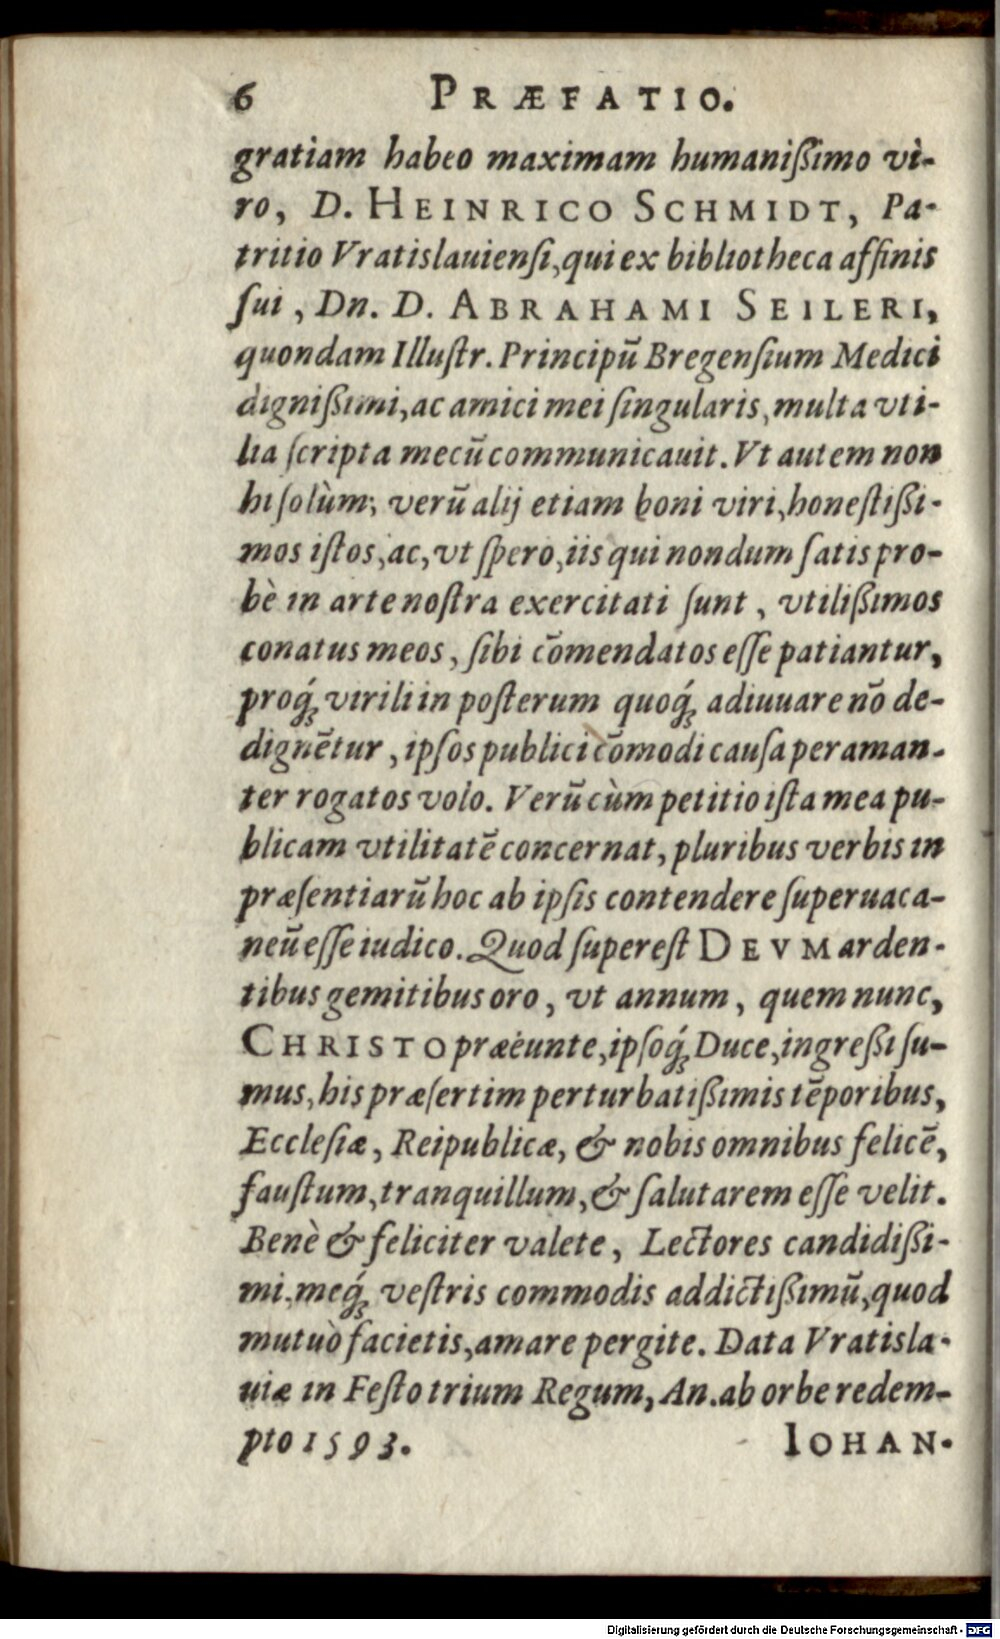 6 PRÆFATIO.
gratiam habeo maximam humanißimo vì-
ro, D. HEINRICO SCHMIDT, Pa-
tritio Vratislauienſi, qui ex bibliotheca affinis
ſui, Dn. D. ABRAHAMI SEILERI,
quondam Illuſtr. Principũ Bregenſium Medici
dignißimi, ac amici mei ſingularis, multa vti-
lia ſcripta mecũ communicauit. Vt autem non
hi ſolùm; verũ alij etiam boni viri, honeſtißi-
mos iſtos, ac, vt ſpero, iis qui nondum ſatis pro-
bè in arte noſtra exercitati ſunt, vtilißimos
conatus meos, ſibi cõmendatos eſſe patiantur,
proq́ꝫ virili in poſterum quoq́ꝫ adiuuare nõ de-
dignẽtur, ipſos publici cõmodi cauſa peraman-
ter rogatos volo. Verũ cùm petitio iſta mea pu-
blicam vtilitatẽ concernat, pluribus verbis in
præſentiarũ hoc ab ipſis contendere ſuperuaca-
neũ eſſe iudico. Quod ſupereſt DEVM arden-
tibus gemitibus oro, vt annum, quem nunc,
CHRISTO præëunte, ipſoq́ꝫ Duce, ingreßi ſu-
mus, his præſertim perturbatißimis tẽporibus,
Eccleſiæ, Reipublicæ, & nobis omnibus felicẽ,
fauſtum, tranquillum, & ſalutarem eſſe velit.
Benè & feliciter valete, Lectores candidißi-
mi, meq́ꝫ veſtris commodis addictißimũ, quod
mutuò facietis, amare pergite. Data Vratisla-
uiæ in Feſto trium Regum, An. ab orbe redem-
pto 1593. IOHAN-
Digitalisierung gefördert durch die Deutsche Forschungsgemeinschaft - DFG